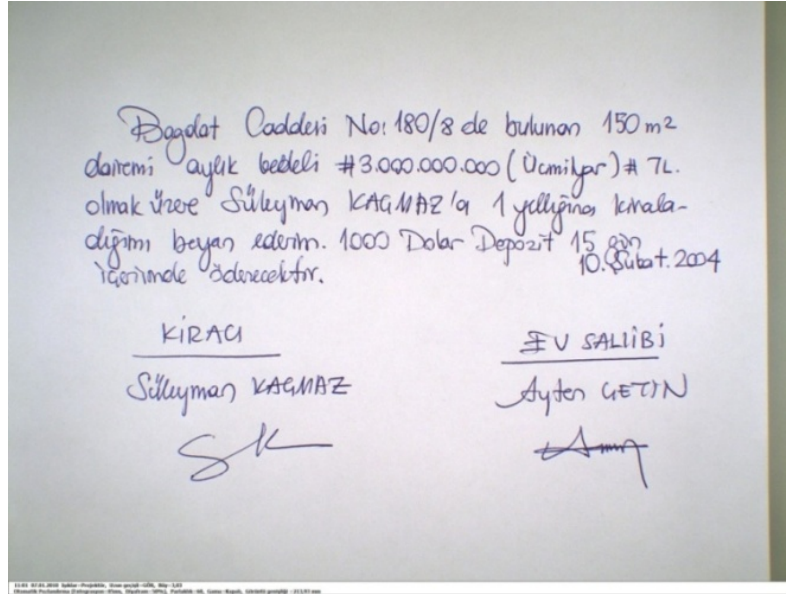 Bagdat Caddesi No: 180/8 de bulunan 150 m2
dairemi aylık bedeli #3.000.000.000 (Ücmilyar)# TL.
olmak üzere Süleyman KAGMAZ'a 1 yıllıgına kirala-
dığımı beyan ederim. 1000 Dolar Depozit 15 gün
içerisinde ödenecektir.
10. Şubat. 2004
KİRACI
EV SAHİBİ
Süleyman KAGMAZ
Ayten ÇETİN
11:01 07.01.2010